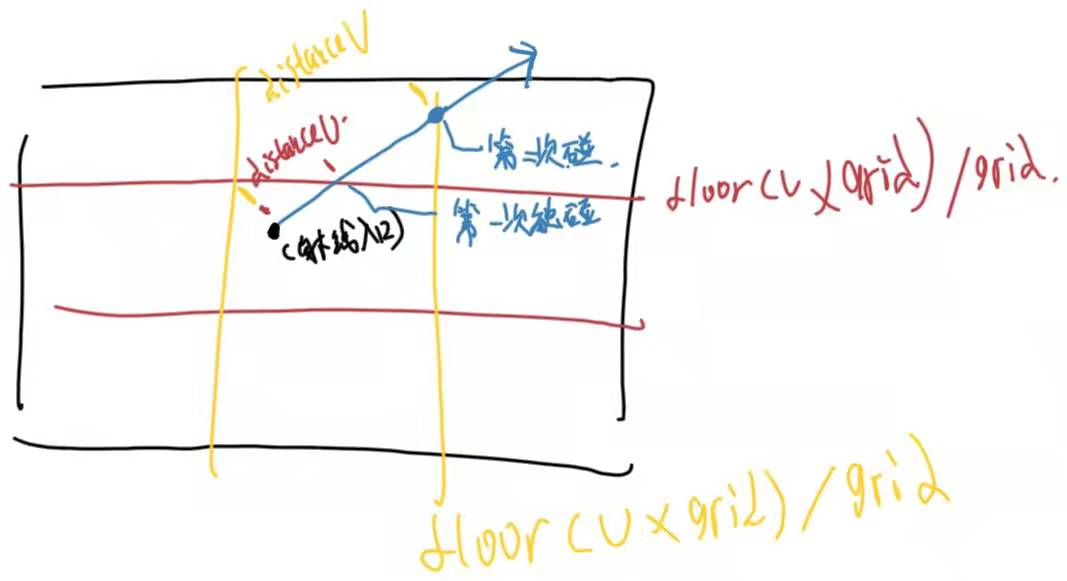 distanceV
distanceU.
第二次碰.
floor(U×grid)/grid.
第一次触碰
(射线入口)
floor(U×grid)/grid